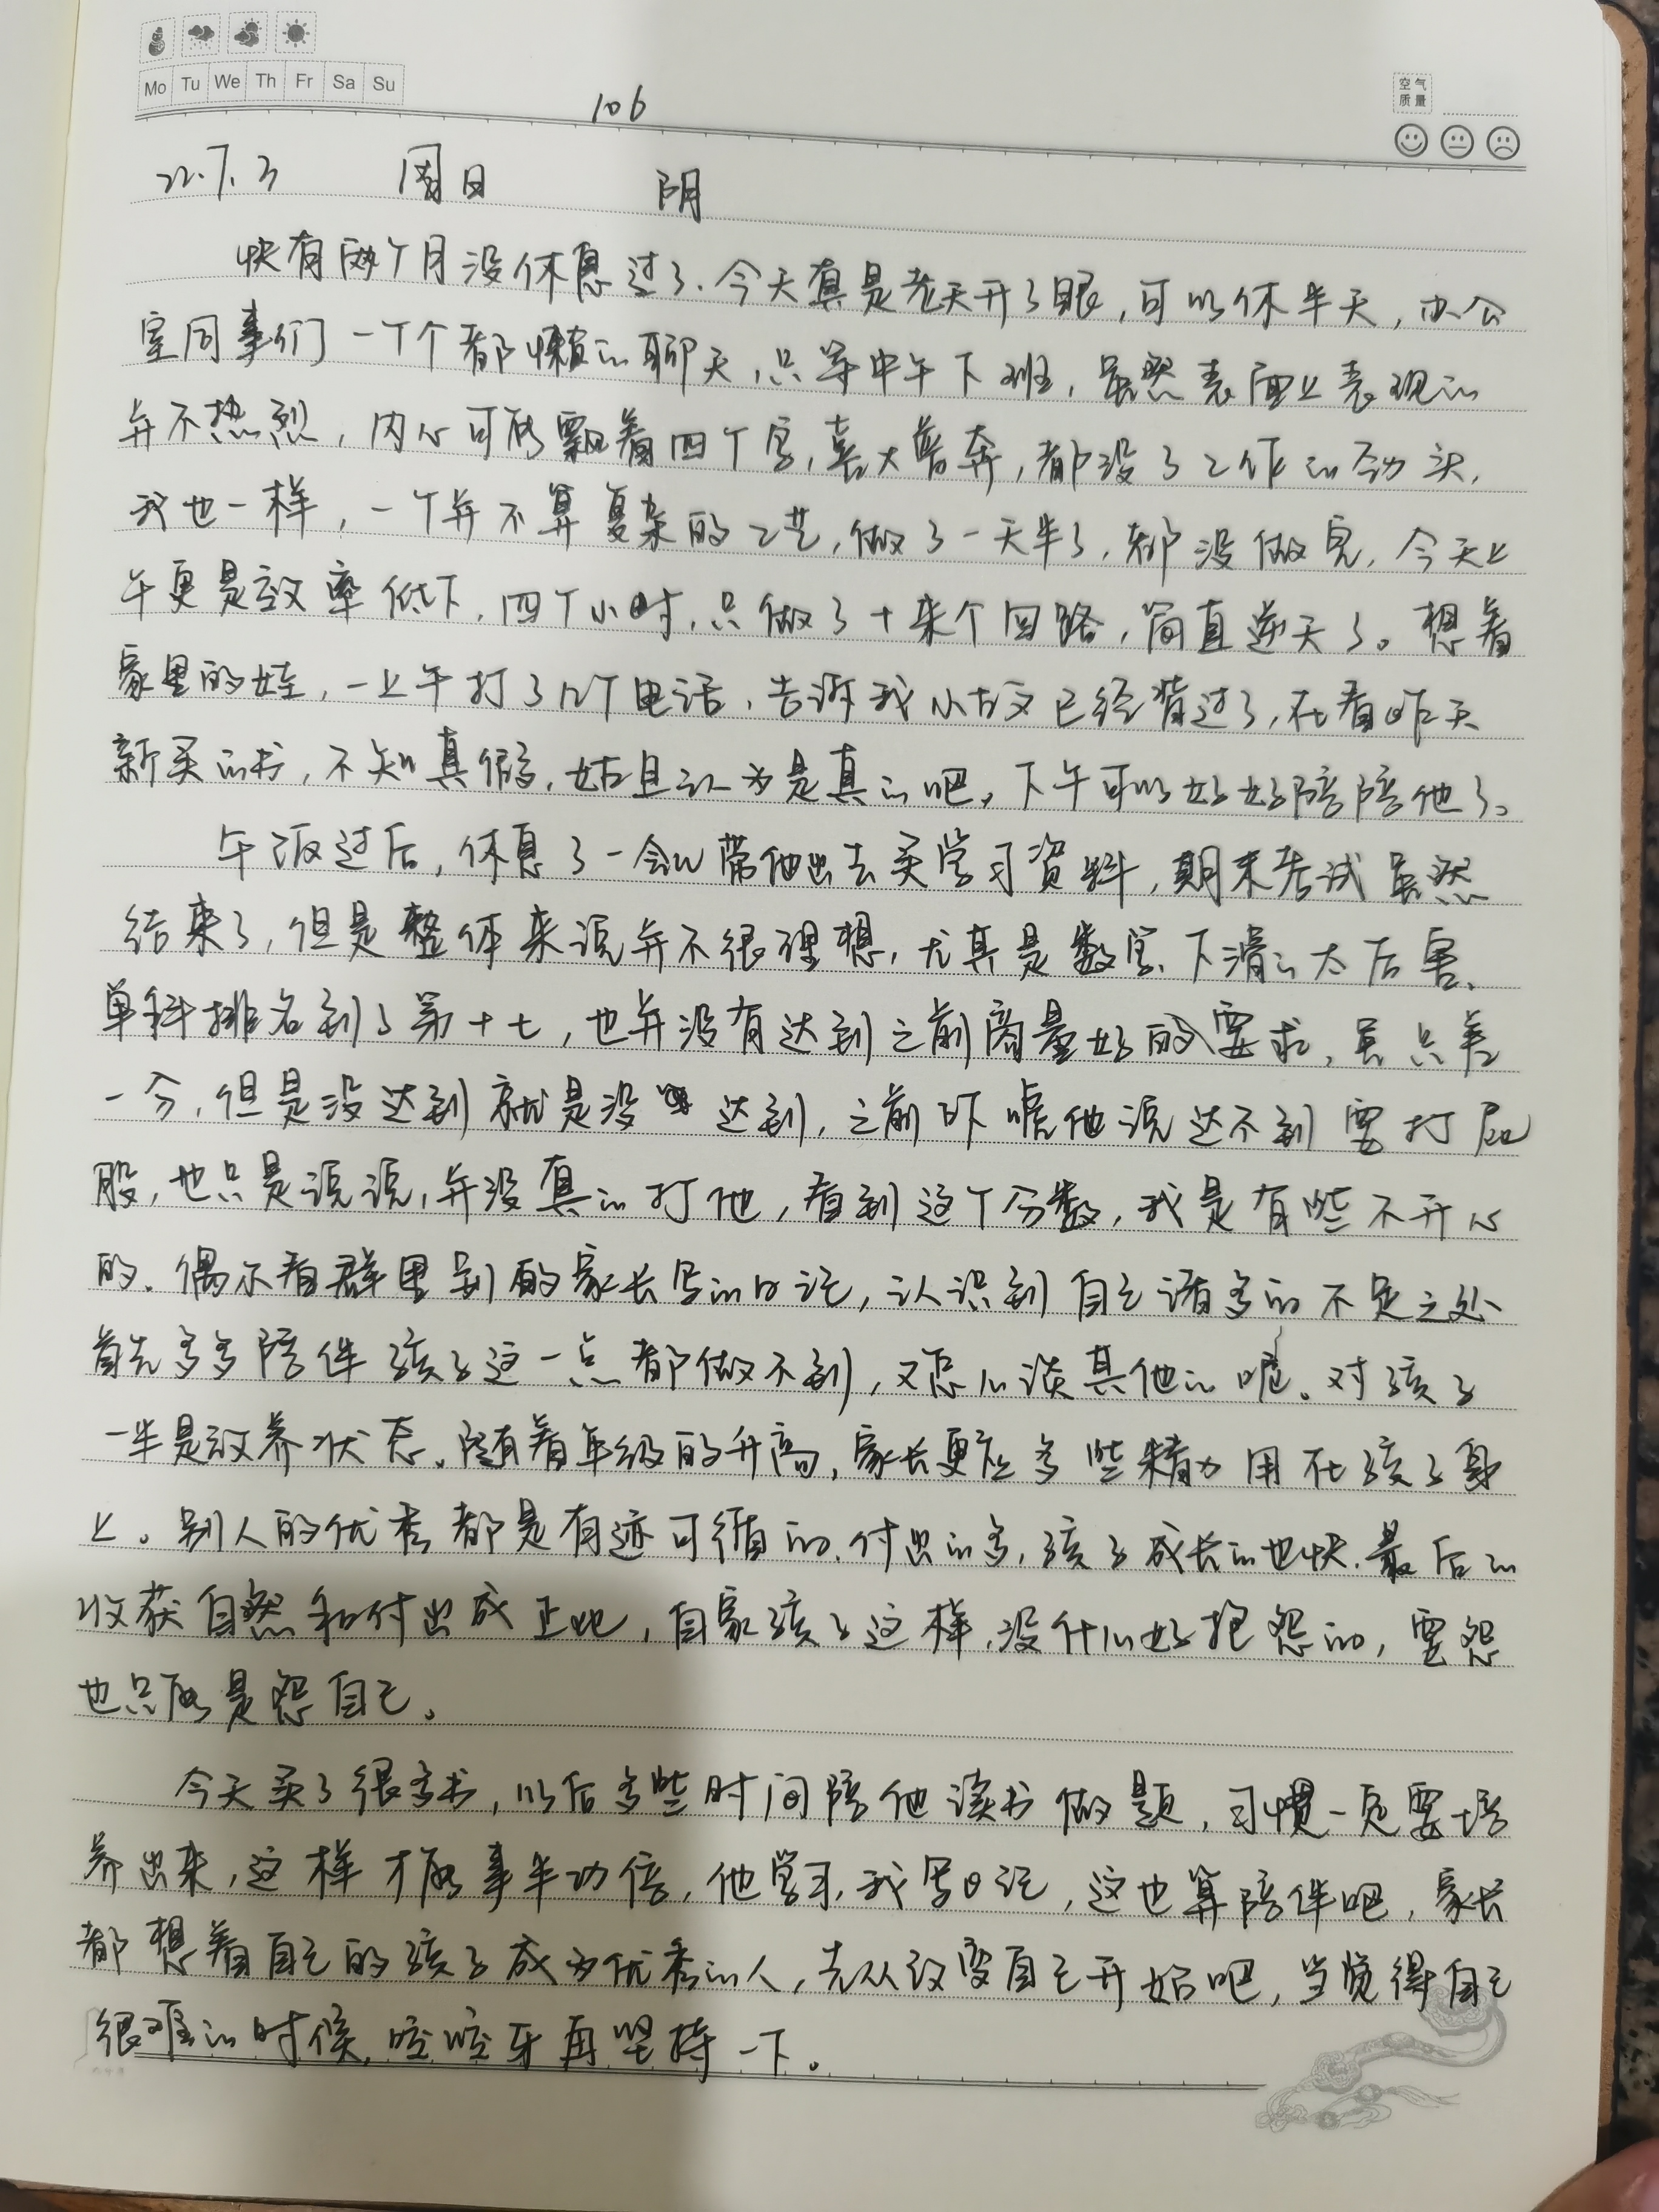 Mo Tu We Th Fr Sa Su
空气
质量
106
22.7.3 周日 阴
快有两个月没休息过了.今天真是老天开了眼,可以休半天,办公
室同事们一个个都懒的聊天,只等中午下班,虽然表面上表现的
并不热烈,内心可能飘着四个字,喜大普奔,都没了工作的劲头,
我也一样,一个并不算复杂的工艺,做了一天半了,都没做完,今天上
午更是效率低下,四个小时,只做了十来个回路,简直逆天了。想着
家里的娃,一上午打了几个电话,告诉我小古文已经背过了,在看昨天
新买的书,不知真假,姑且认为是真的吧,下午可以好好陪陪他了。
午饭过后,休息了一会儿带他出去买学习资料,期末考试虽然
结束了,但是整体来说并不很理想,尤其是数学、下滑的太厉害、
单科排名到了第十七,也并没有达到之前商量好的要求,虽只差
一分,但是没达到就是没达到,之前吓唬他说达不到要打屁
股,也只是说说,并没真的打他,看到这个分数,我是有些不开心
的.偶尔看群里别的家长写的日记,认识到自己诸多的不足之处
首先多多陪伴孩子这一点都做不到,又怎么谈其他的呢。对孩子
一半是放养状态。随着年级的升高,家长更应多些精力用在孩子身
上。别人的优秀都是有迹可循的.付出的多,孩子成长的也快.最后的
收获自然和付出成正比,自家孩子这样,没什么好抱怨的,要怨
也只能是怨自己。
今天买了很多书,以后多些时间陪他读书做题,习惯一定要培
养出来,这样才能事半功倍,他学习,我写日记,这也算陪伴吧,家长
都想着自己的孩子成为优秀的人,先从改变自己开始吧,当觉得自己
很难的时候,咬咬牙再坚持一下。